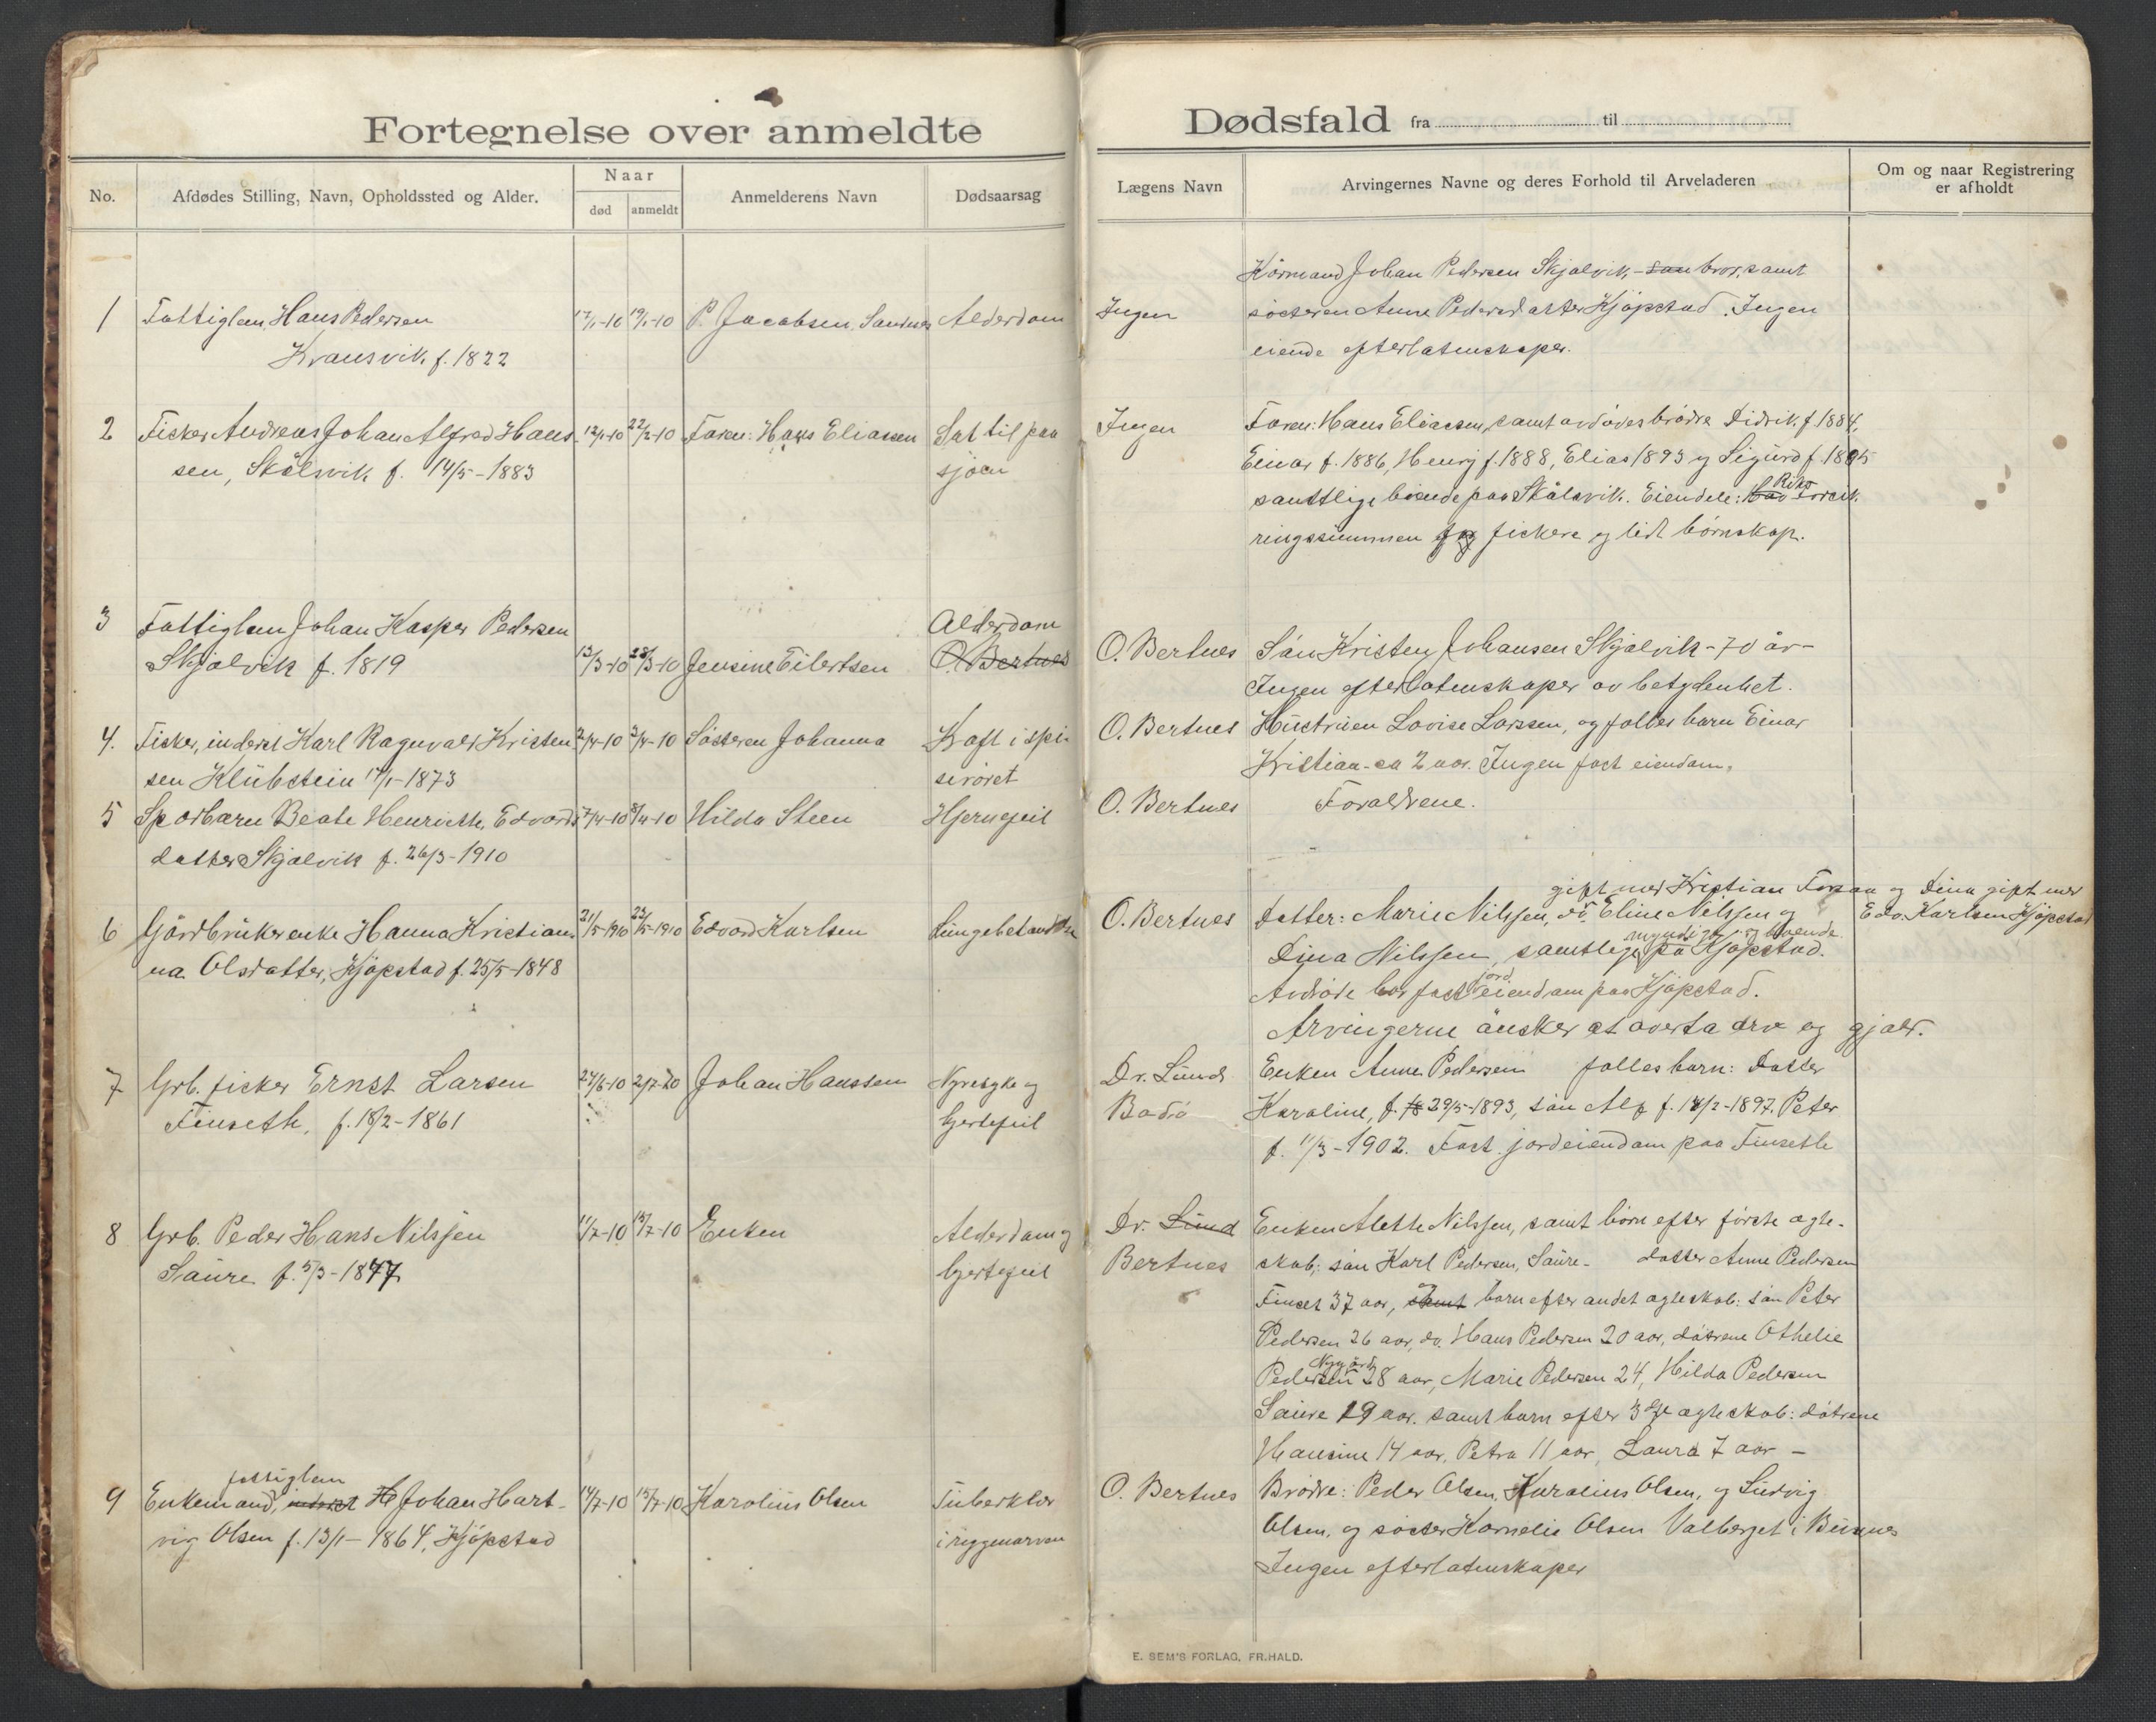 Fortegnelse over anmeldte
Dødsfald fra til
No.
Afdødes Stilling, Navn, Opholdssted og Alder.
Naar
død
anmeldt
Anmelderens Navn
Dødsaarsag
Lægens Navn
Arvingernes Navne og deres Forhold til Arveladeren
Om og naar Registrering
er afholdt
1 Fattiglem Hans Pedersen 17/1-10 19/1-10 P. Jacobsen, Sandnes Alderdom
Kransvik f. 1822
Ingen
Kårmand Johan Pedersen Skjælvik - bror, samt
søsteren Anne Pedersdatter Kjöpstad. Ingen
eiende efterlatenskaper.
2 Fisker Andreas Johan Alfred Hans- 12/1-10 22/2-10 Faren: Hans Eliassen Sat til paa
sen, Skålsvik f. 14/5-1883 sjöen
Ingen
Faren: Hans Eliassen, samt avdödes brödre Didrik f. 1884,
Einar f. 1886, Henrij f. 1888, Elias 1893 og Sigurd f. 1895
samtlige boende paa Skålsvik. Eiendele: Riks
ringssummen for fiskere og lidt börnskap.
3 Fattiglem Johan Kasper Pedersen Alderdom
Skjælvik f. 1819 13/3-10 28/3-10 Jensine Eilertsen O. Bertnes
O. Bertnes
Sön Kristen Johansen Skjælvik - 70 år -
Ingen efterlatenskaper av betydenhet.
4. Fisker, inderst Karl Ragnvald Kristen 2/4-10 3/4-10 Sösteren Johanna Kræft i spi-
sen Klübstein 14/1-1873 serøret
O. Bertnes
Hustruen Lovise Larssen, og fælles barn Einar
Kristian - ca 2 aar. Ingen fast eiendom.
5 Spædbarn Beate Henriette, Edvards 7/4-10 8/4-10 Hilda Steen Hjernefeil
datter Skjælvik f. 26/3-1910
O. Bertnes
Foraldrene.
6 Gårdbrukerenke Hanna Kristian 21/5-1910 23/5-1910 Edvard Karlsen Lungebetændelse
na Olsdatter, Kjöpstad f. 25/5-1848
O. Bertnes
gift med Kristian Forsan og Dina gift med
Datter: Marie Nilssen, do. Eline Nilssen og Edv. Karlsen Kjöpstad
myndige og boende
Dina Nilssen, samtlige på Kjöpstad.
jord
Avdöde har fast eiendom paa Kjöpstad.
Arvingerne önsker at overta arv og gjæld.
7 Grb. fisker Ernst Larsen 24/6-10 2/7-10 Johan Hanssen Nyresyke og
Finseth, f. 18/2-1861 hjertefeil
Dr. Lund
Bodö
Enken Anne Pedersen fælles barn: Datter
Karoline, f. 29/5-1893, sön Alf f. 18/2-1897, Peter
f. 11/3-1902. Fast jordeiendom paa Finseth
8 Grb. Peder Hans Nilssen 11/7-10 13/7-10 Enken Alderdom og
Saure f. 5/3-1847 hjertefeil
Dr. Lund
Bertnes
Enken Aleth Nilssen, samt börn efter förste ægte-
skab: sön Karl Pedersen, Saure - datter Anne Pedersen
og
Finset 37 aar, samt barn efter andet ægteskab: sön Peter
Pedersen 26 aar, do. Hans Pedersen 20 aar, dötrene Othelie
Nygård
Pedersen 28 aar, Marie Pedersen 24, Hilda Pedersen
Saure 19 aar. samt barn efter 3dje ægteskab: dötrene
Hansine 14 aar, Petra 11 aar, Laura 7 aar -
fattiglem
9 Enkemand, inderst H Johan Hart- 14/7-10 15/7-10 Karolius Olsen Tuberklor
vig Olsen f. 13/1-1864, Kjöpstad i ryggmarven
O. Bertnes
Brödre: Peder Olsen, Karolius Olsen, og Ludvig
Olsen, og söster Kornelie Olsen Valberget i Buksnes
Ingen efterlatenskaper
E. SEM'S FORLAG, FR.HALD.